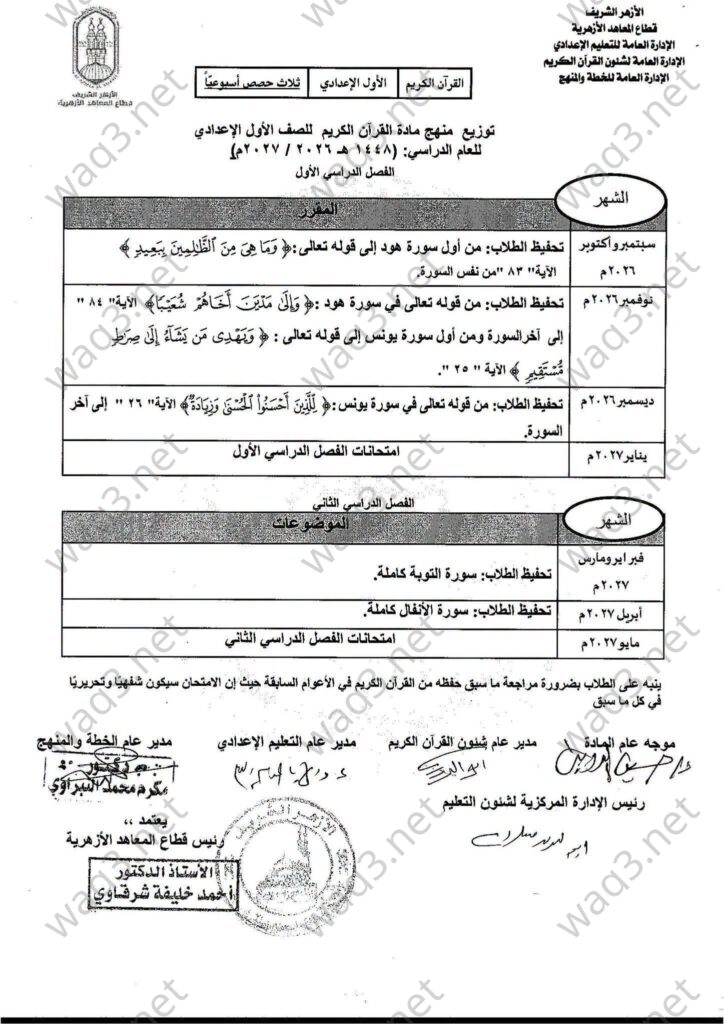 الأزهر الشريف
قطاع المعاهد الأزهرية
الإدارة العامة للتعليم الإعدادي
الإدارة العامة لشئون القرآن الكريم
الإدارة العامة للخطة والمنهج
الأزهر الشريف
قطاع المعاهد الأزهرية
القرآن الكريم الأول الإعدادي ثلاث حصص أسبوعيًا
توزيع منهج مادة القرآن الكريم للصف الأول الإعدادي
للعام الدراسي: (١٤٤٨ هـ ٢٠٢٦ / ٢٠٢٧م)
الفصل الدراسي الأول
الشهر المقرر
سبتمبر وأكتوبر ٢٠٢٦م
تحفيظ الطلاب: من أول سورة هود إلى قوله تعالى:﴿ وَمَا هِىَ مِنَ ٱلظَّٰلِمِينَ بِبَعِيدٍ ﴾
الآية" ٨٣ "من نفس السورة.
نوفمبر ٢٠٢٦م
تحفيظ الطلاب: من قوله تعالى في سورة هود :﴿ وَإِلَىٰ مَدْيَنَ أَخَاهُمْ شُعَيْبًا﴾ الآية" ٨٤ "
إلى آخر السورة ومن أول سورة يونس إلى قوله تعالى : ﴿ وَيَهْدِى مَن يَشَآءُ إِلَىٰ صِرَٰطٍ
مُّسْتَقِيمٍ ﴾ الآية " ٢٥ ".
ديسمبر ٢٠٢٦م
تحفيظ الطلاب: من قوله تعالى في سورة يونس:﴿ لِّلَّذِينَ أَحْسَنُوا۟ ٱلْحُسْنَىٰ وَزِيَادَةٌ﴾ الآية" ٢٦ " إلى آخر
السورة.
يناير ٢٠٢٧م امتحانات الفصل الدراسي الأول
الفصل الدراسي الثاني
الشهر الموضوعات
فبراير ومارس ٢٠٢٧م
تحفيظ الطلاب: سورة التوبة كاملة.
أبريل ٢٠٢٧م تحفيظ الطلاب: سورة الأنفال كاملة.
مايو ٢٠٢٧م امتحانات الفصل الدراسي الثاني
ينبه على الطلاب بضرورة مراجعة ما سبق حفظه من القرآن الكريم في الأعوام السابقة حيث إن الامتحان سيكون شفهيًا وتحريريًا
في كل ما سبق
موجه عام المادة مدير عام شئون القرآن الكريم مدير عام التعليم الإعدادي مدير عام الخطة والمنهج
رئيس الإدارة المركزية لشئون التعليم
يعتمد ،،
رئيس قطاع المعاهد الأزهرية
الأستاذ الدكتور
أحمد خليفة شرقاوي
الأزهر الشريف
waq3.net